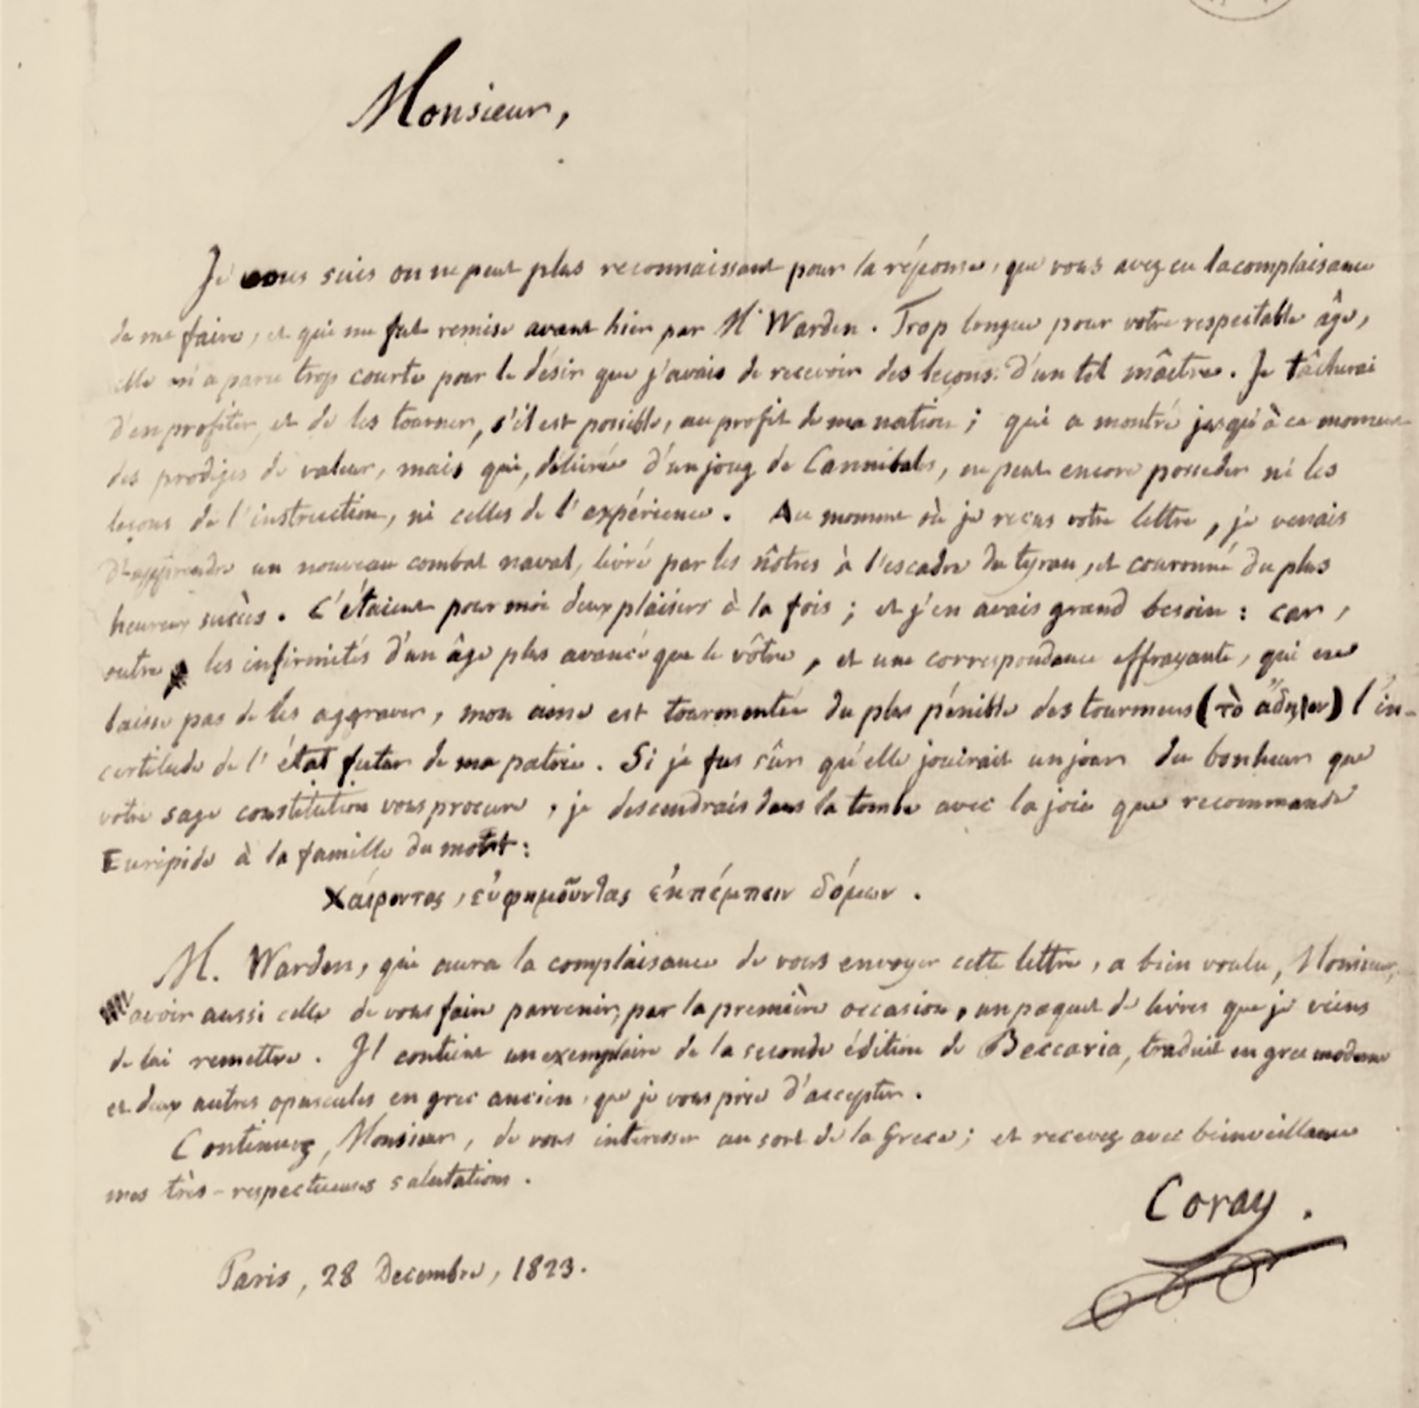 Monsieur,
Je vous suis on ne peut plus reconnaissant pour la réponse, que vous avez eu la complaisance
de me faire, et qui me fut remise avant hier par Mr Warden. Trop longue pour votre respectable âge,
elle m'a paru trop courte pour le désir que j'avais de recevoir des leçons d'un tel maître. Je tâcherai
d'en profiter, et de les tourner, s'il est possible, au profit de ma nation; qui a montré jusqu'à ce moment
des prodiges de valeur, mais qui, délivrée d'un joug de Cannibals, ne peut encore posseder ni les
leçons de l'instruction, ni celles de l'expérience. Au moment où je reçus votre lettre, je venais
d'apprendre un nouveau combat naval, livré par les nôtres à l'escadre du tyran, et couronné du plus
heureux succès. C'étaient pour moi deux plaisirs à la fois; et j'en avais grand besoin: car,
outre les infirmités d'un âge plus avancé que le vôtre, et une correspondance effrayante, qui ne
laisse pas de les aggraver, mon ame est tourmentée du plus pénible des tourmens (τὸ ἄδηλον) l'in-
certitude de l'état futur de ma patrie. Si je fus sûr qu'elle jouirait un jour du bonheur que
votre sage constitution vous procure, je descendrais dans la tombe avec la joie que recommande
Euripide à la famille du mort:
Χαίροντας, εὐφημοῦντας ἐκπέμπειν δόμων.
M. Warden, qui aura la complaisance de vous envoyer cette lettre, a bien voulu, Monsieur,
avoir aussi celle de vous faire parvenir, par la première occasion, un paquet de livres que je viens
de lui remettre. Il contient un exemplaire de la seconde édition de Beccaria, traduit en grec moderne
et deux autres opuscules en grec ancien, que je vous prie d'accepter.
Continuez, Monsieur, de vous interesser au sort de la Grece; et recevez avec bienveillance
mes très-respectueuses salutations.
Coray.
Paris, 28 Decembre, 1823.